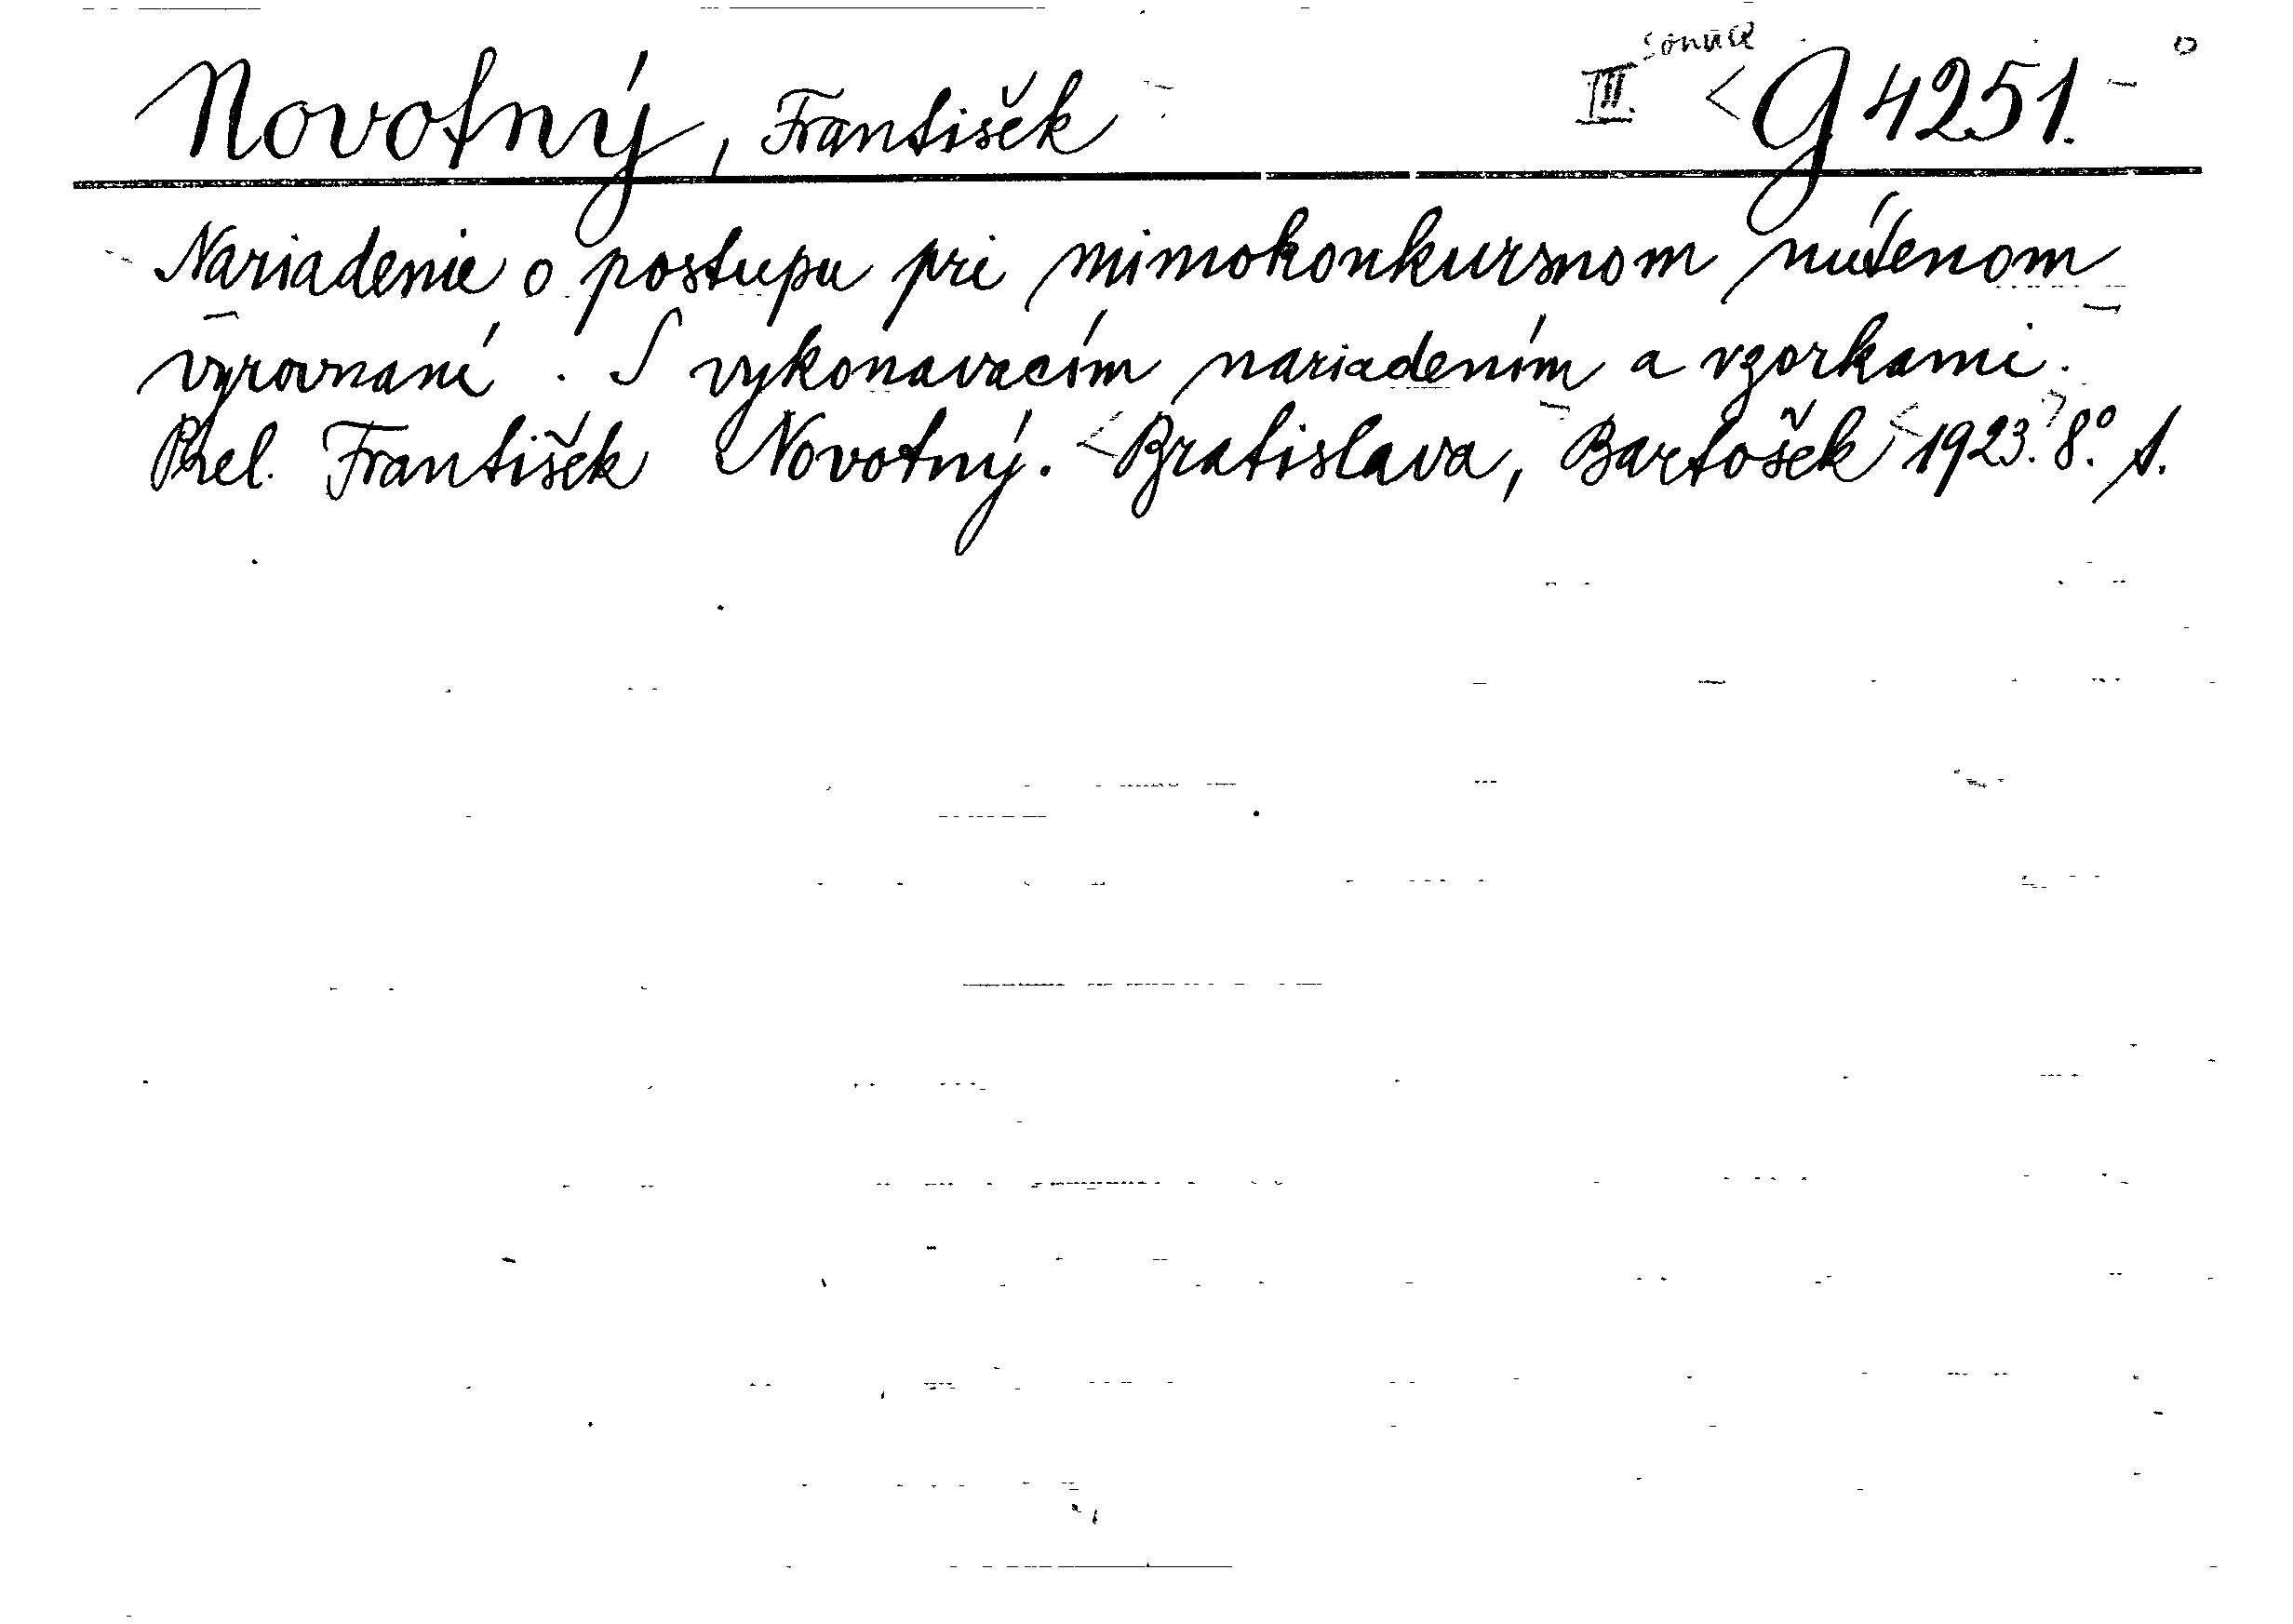 Novotný, František III. G 4251.
Nariadenie o postupu pri mimokonkursnom núteňom
vyrovnaní. S vykonavacím nariadením a vzorkami.
Prel. František Novotný. Bratislava, Bartošek 1923. 8.° s.